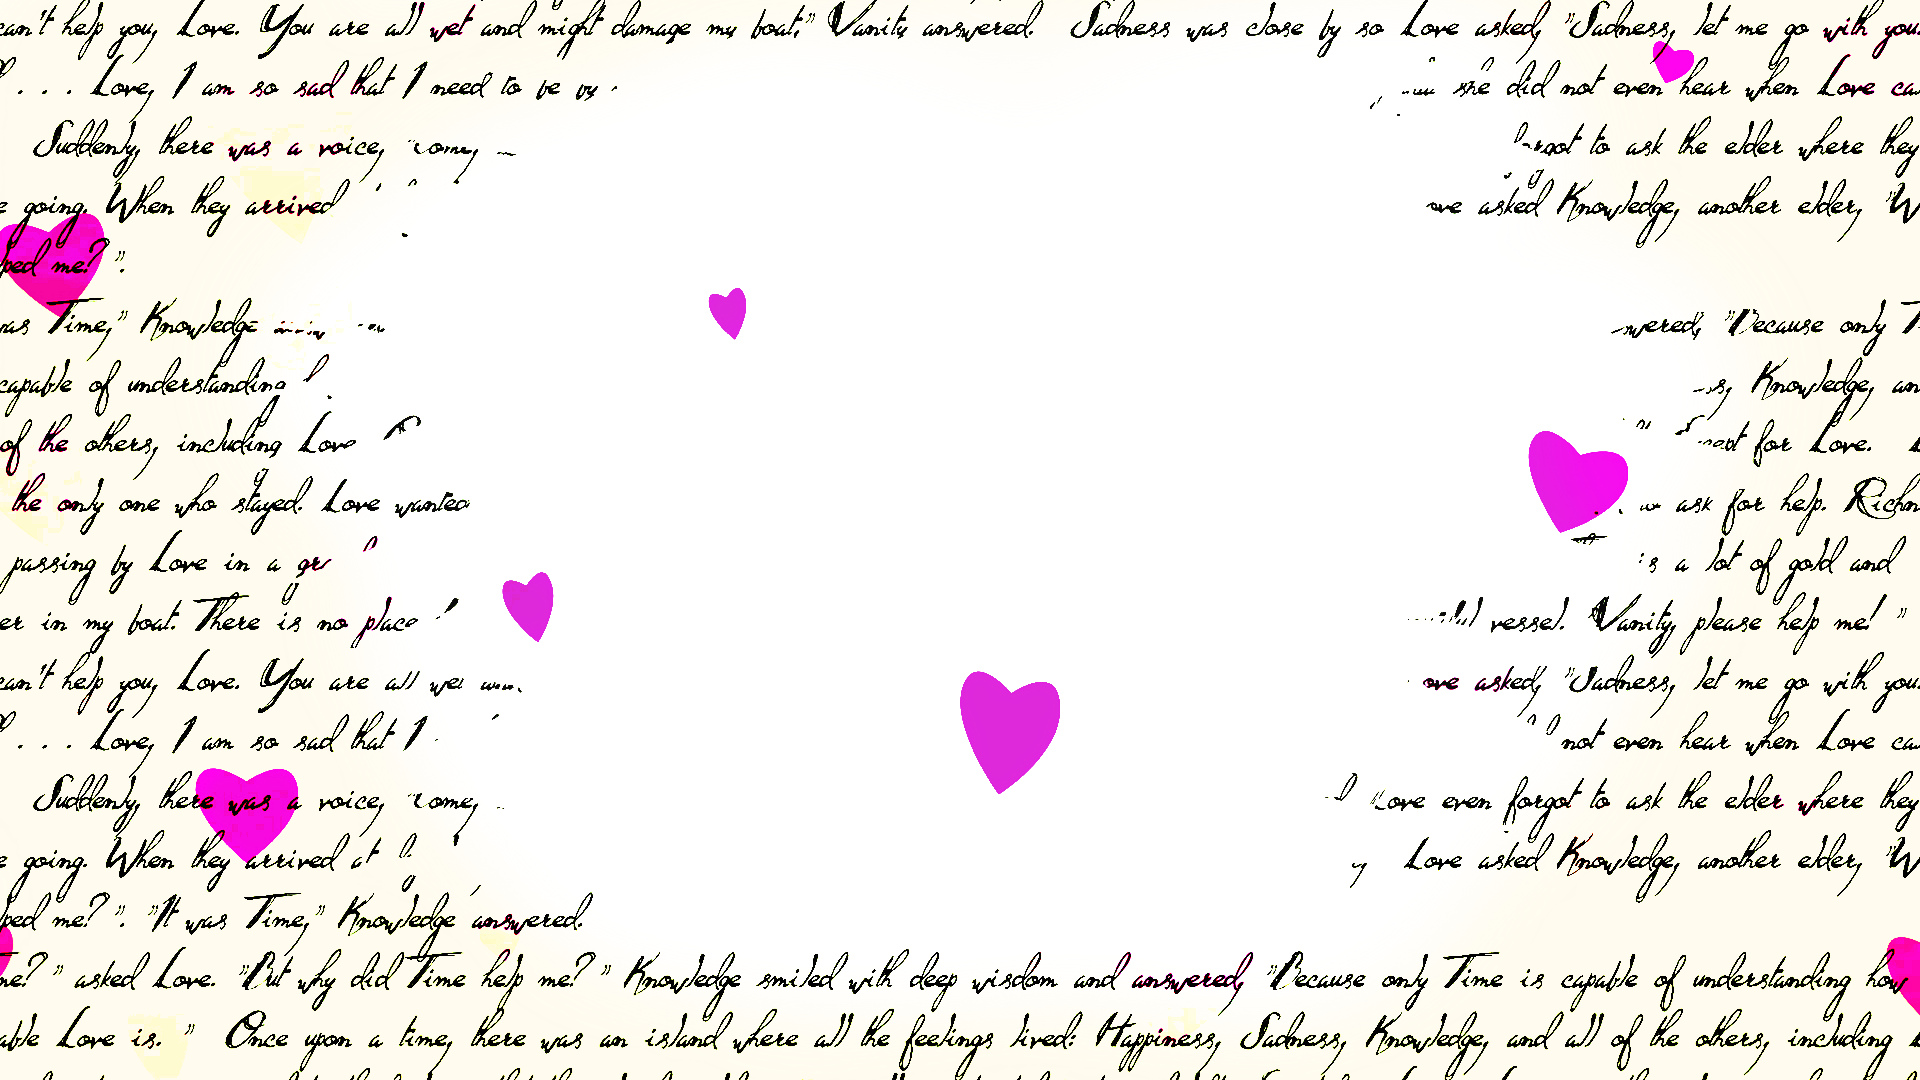 can't help you, Love. You are all wet and might damage my boat," Vanity answered. Sadness was close by so Love asked, "Sadness, let me go with you.
. . . Love, I am so sad that I need to be by she did not even hear when Love
Suddenly, there was a voice, come, to ask the elder where they
going. When they arrived asked Knowledge, another elder,
me? ".
was Time," Knowledge "Because only
capable of understanding Knowledge,
of the others, including Love for Love.
the only one who stayed. Love wanted ask for help.
passing by Love in a is a lot of gold and
in my boat. There is no place vessel. Vanity, please help me! "
can't help you, Love. You are all wet asked, "Sadness, let me go with you.
. . . Love, I am so sad that I not even hear when Love
Suddenly, there was a voice, come, Love even forgot to ask the elder where they
going. When they arrived at Love asked Knowledge, another elder,
me? ". "It was Time," Knowledge answered.
me? " asked Love. "But why did Time help me? " Knowledge smiled with deep wisdom and answered, "Because only Time is capable of understanding how
Love is. " Once upon a time, there was an island where all the feelings lived: Happiness, Sadness, Knowledge, and all of the others, including